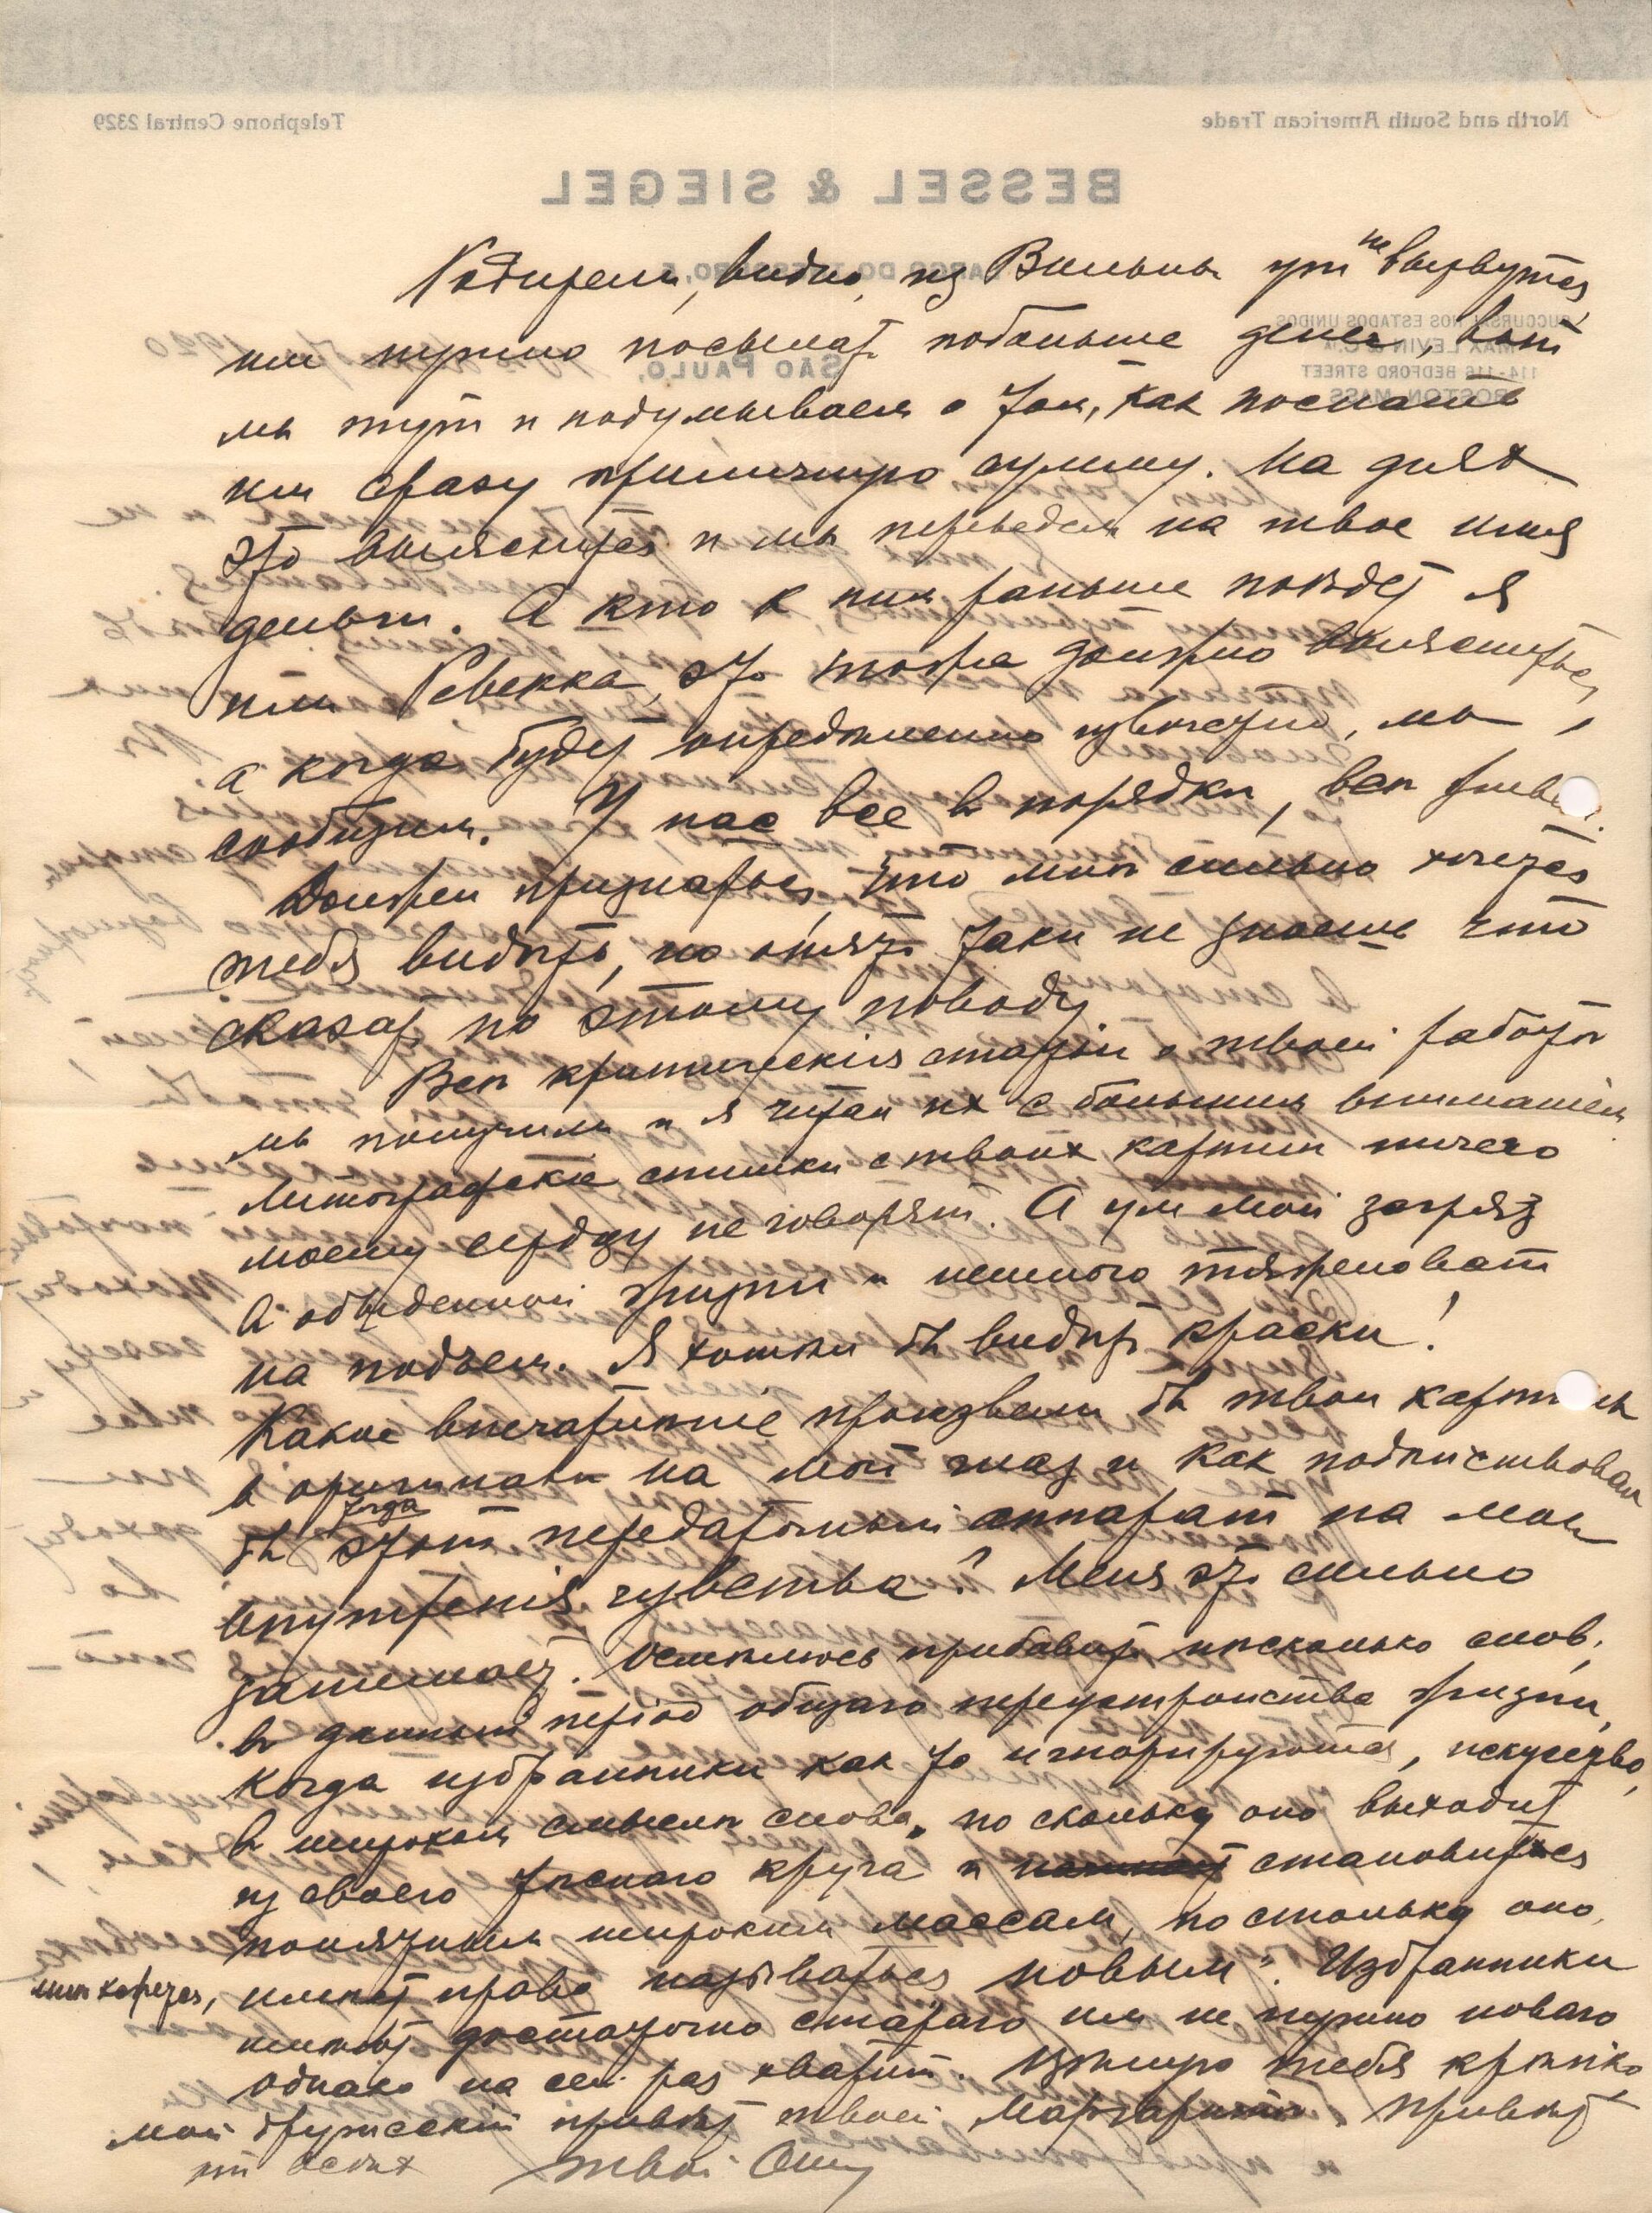 North and South American Trade
Telephone Central 2329
BESSEL & SIEGEL
LARGO DO THESOURO, 5
SUCCURSAL NOS ESTADOS UNIDOS
MAX LEVIN & C.
114-116 BEDFORD STREET
BOSTON, MASS.
SÃO PAULO,
1920
Родители, видно, из Вильны уж не вырвутся,
им нужно посылать побольше денег, вот
мы тут и подумываем о том, как послать
им сразу приличную сумму. На днях
это выяснится и мы переведем на твое имя
деньги. А кто к ним раньше поѣдет я
или Ревекка, это тоже должно выясниться,
а когда будет опредѣленно извѣстно, мы
сообщим. У нас все в порядкѣ, всѣ
Должен признаться, что мнѣ сильно хочется
тебя видѣть, но опять таки не знаешь что
сказать по этому поводу
Всѣ критическія статьи о твоей работѣ
мы получили и я читал их с большим вниманіем
Литографскіе снимки с твоих картин ничего
моему сердцу не говорят. А ум мой загряз
в обыденной жизни и немного тяжеловат
на подъем. Я хотѣл бы видѣть краски!
Какое впечатлѣніе произвели бы твои картины
в оригиналѣ на мой глаз и как подѣйствовал
бы тогда этот передаточный аппарат на мои
внутренія чувства? Меня это сильно
занимает. Осмѣлюсь прибавить нѣсколько слов,
в данный період общаго переустройства жизни,
когда избранники как то игнорируются, искусство,
в широком смыслѣ слова, по скольку оно выходит
из своего тѣснаго круга и становится
понятным широким массам, по стольку оно,
мнѣ кажется, имѣет право называться "новым". Избранники
имѣют достаточно стараго им не нужно новаго
однако на сей раз хватит. Цѣлую тебя крѣпко
мой дружеский привѣт твоей Маргаритѣ. Привѣт
от всѣх твой